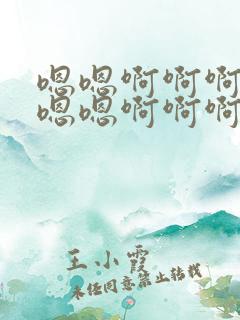 嗯嗯啊啊啊
嗯嗯啊啊啊
王小霞
未经同意禁止转载